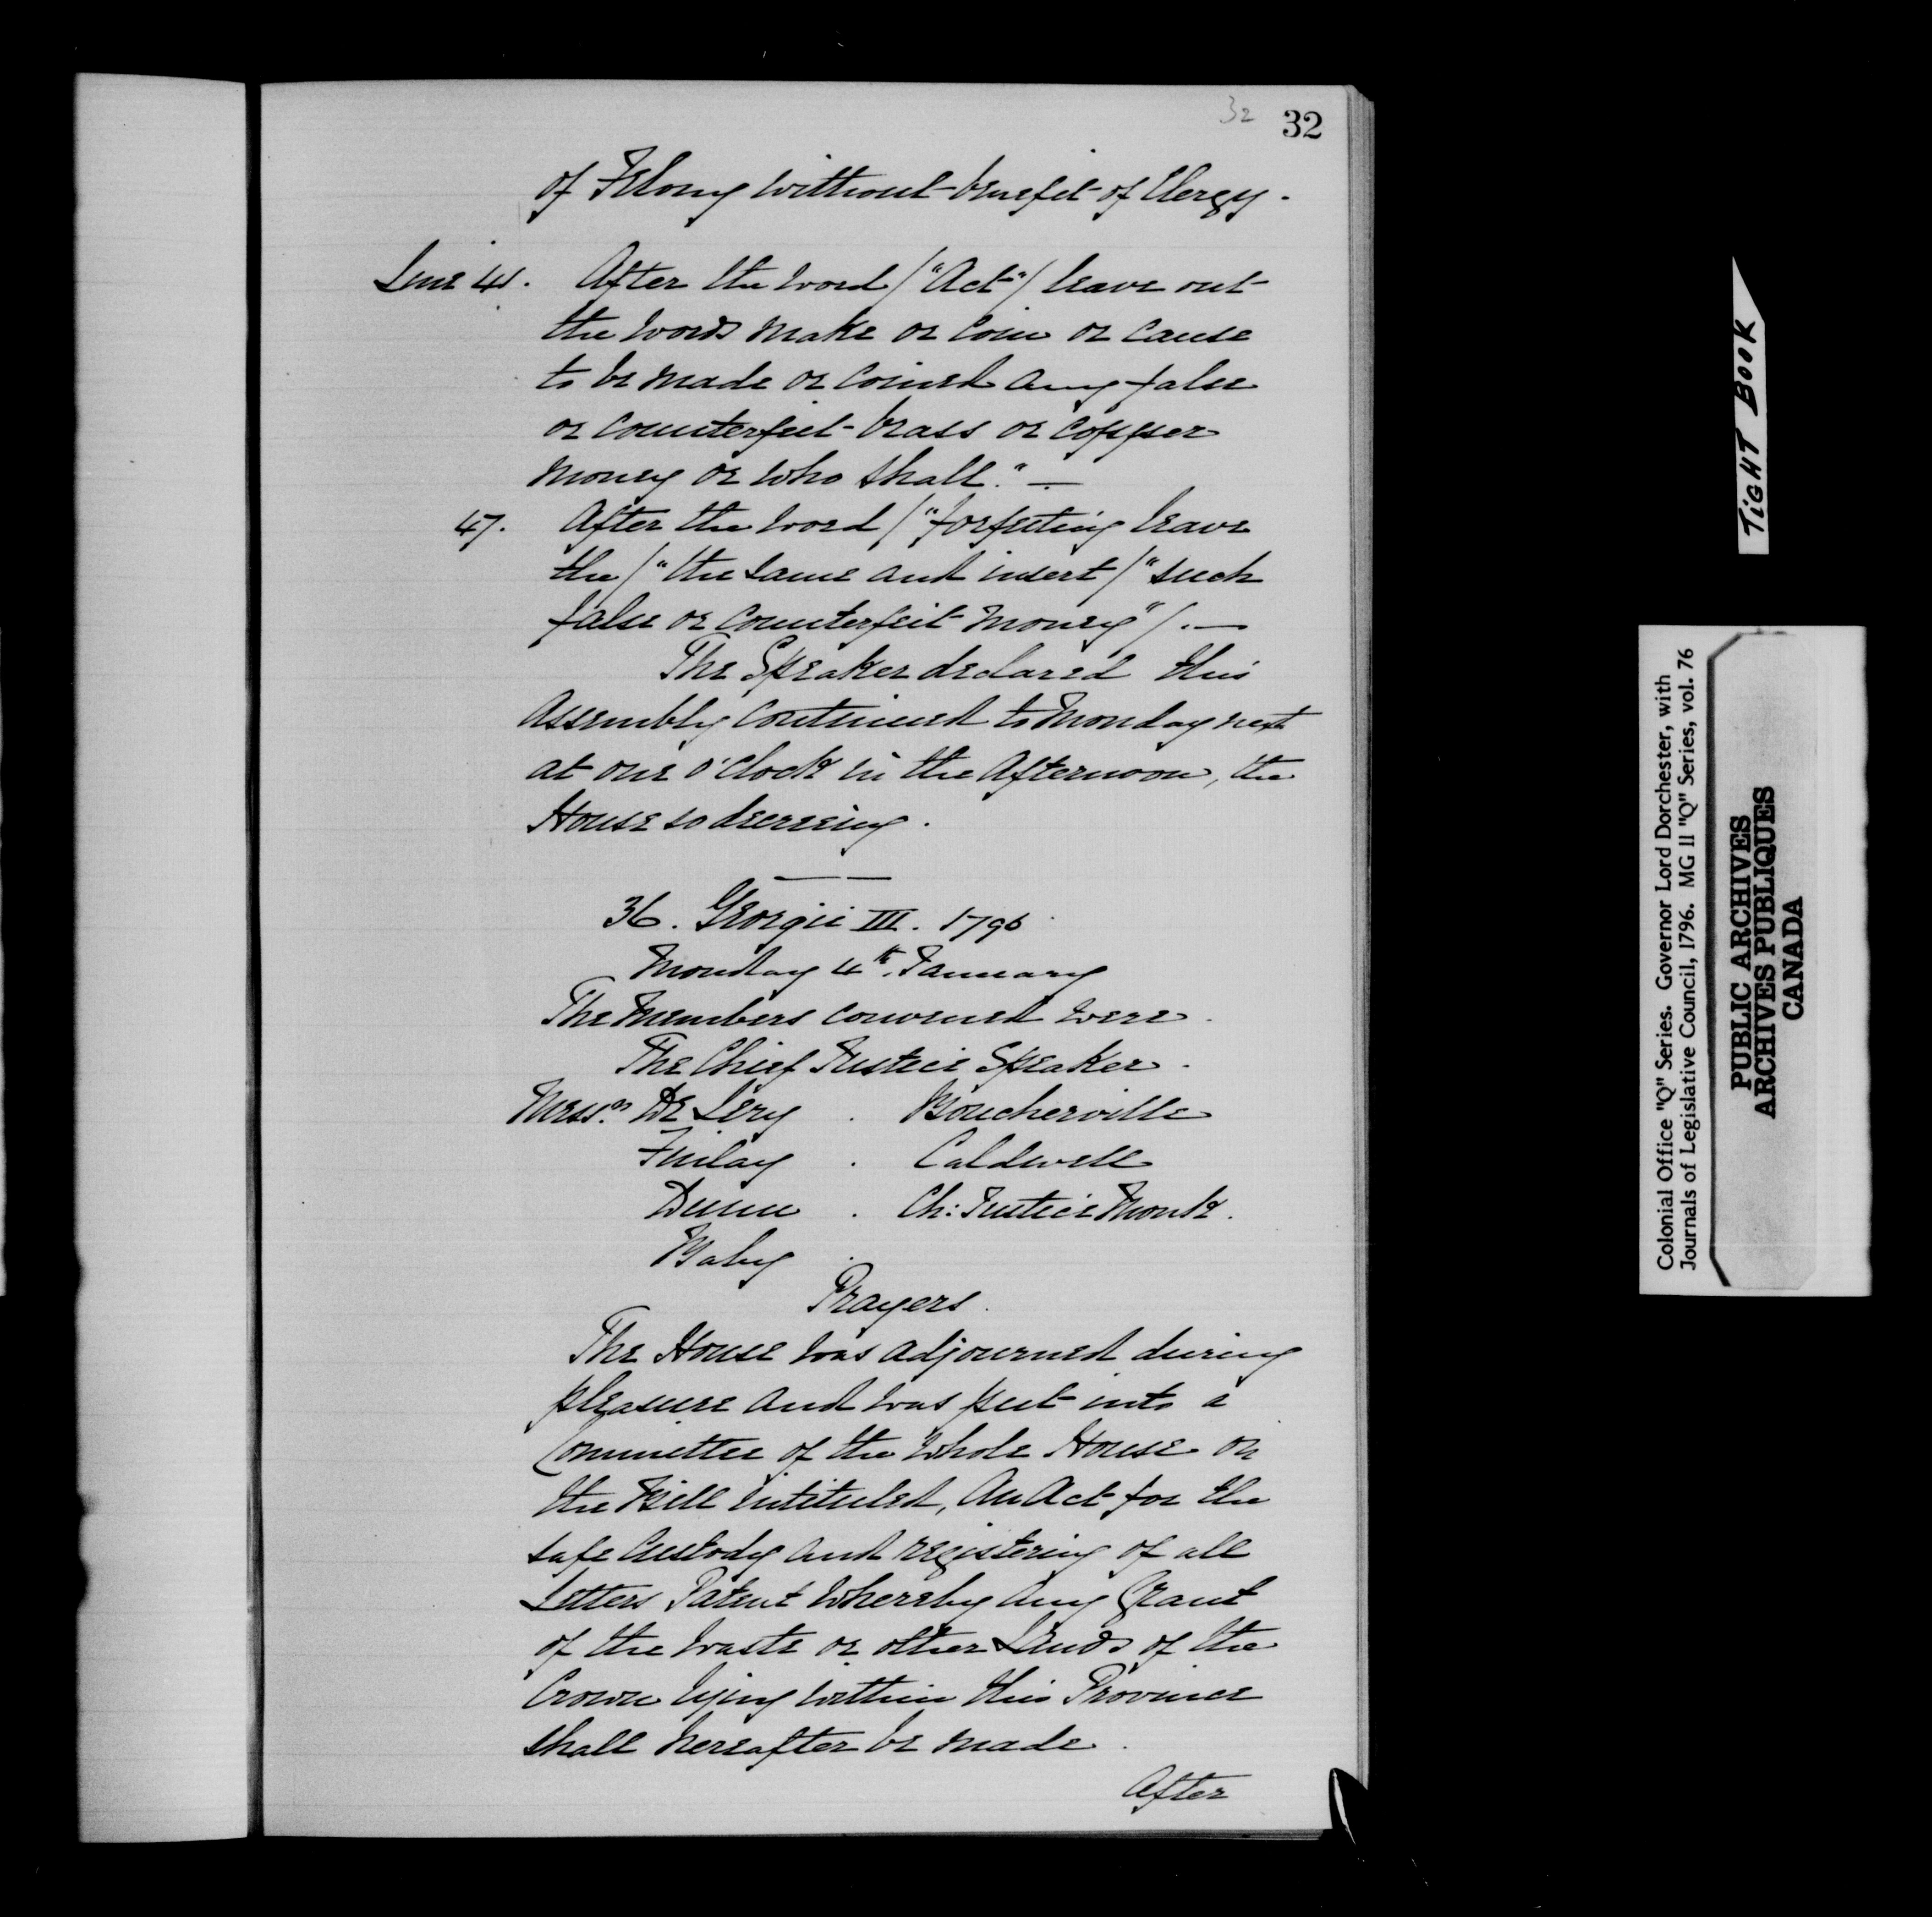 32 32
of Felony without benefit of Clergy.
Line 41. After the word / "Act" / leave out
the words make or coin or cause
to be made or coined any false
or counterfeit brass or copper
money or who shall." —
47. After the word / "forfeiting leave
the / "the same and insert / "such
false or counterfeit money" / . —
The Speaker declared this
Assembly continued to Monday next
at one o'Clock in the Afternoon, the
House so decreeing.
36. Georgii III. 1796
Monday 4th. January
The Members convened were.
The Chief Justice Speaker.
Messrs. De Léry . Boucherville
Finlay . Caldwell
Dunn . Ch: Justice Monk.
Baby
Prayers.
The House was adjourned during
pleasure and was put into a
Committee of the Whole House on
the Bill intituled, An Act for the
safe Custody and registering of all
Letters Patent whereby any Grant
of the waste or other Lands of the
Crown lying within this Province
shall hereafter be made.
After
TIGHT BOOK
Colonial Office "Q" Series. Governor Lord Dorchester, with
Journals of Legislative Council, 1796. MG 11 "Q" Series, vol. 76
PUBLIC ARCHIVES
ARCHIVES PUBLIQUES
CANADA